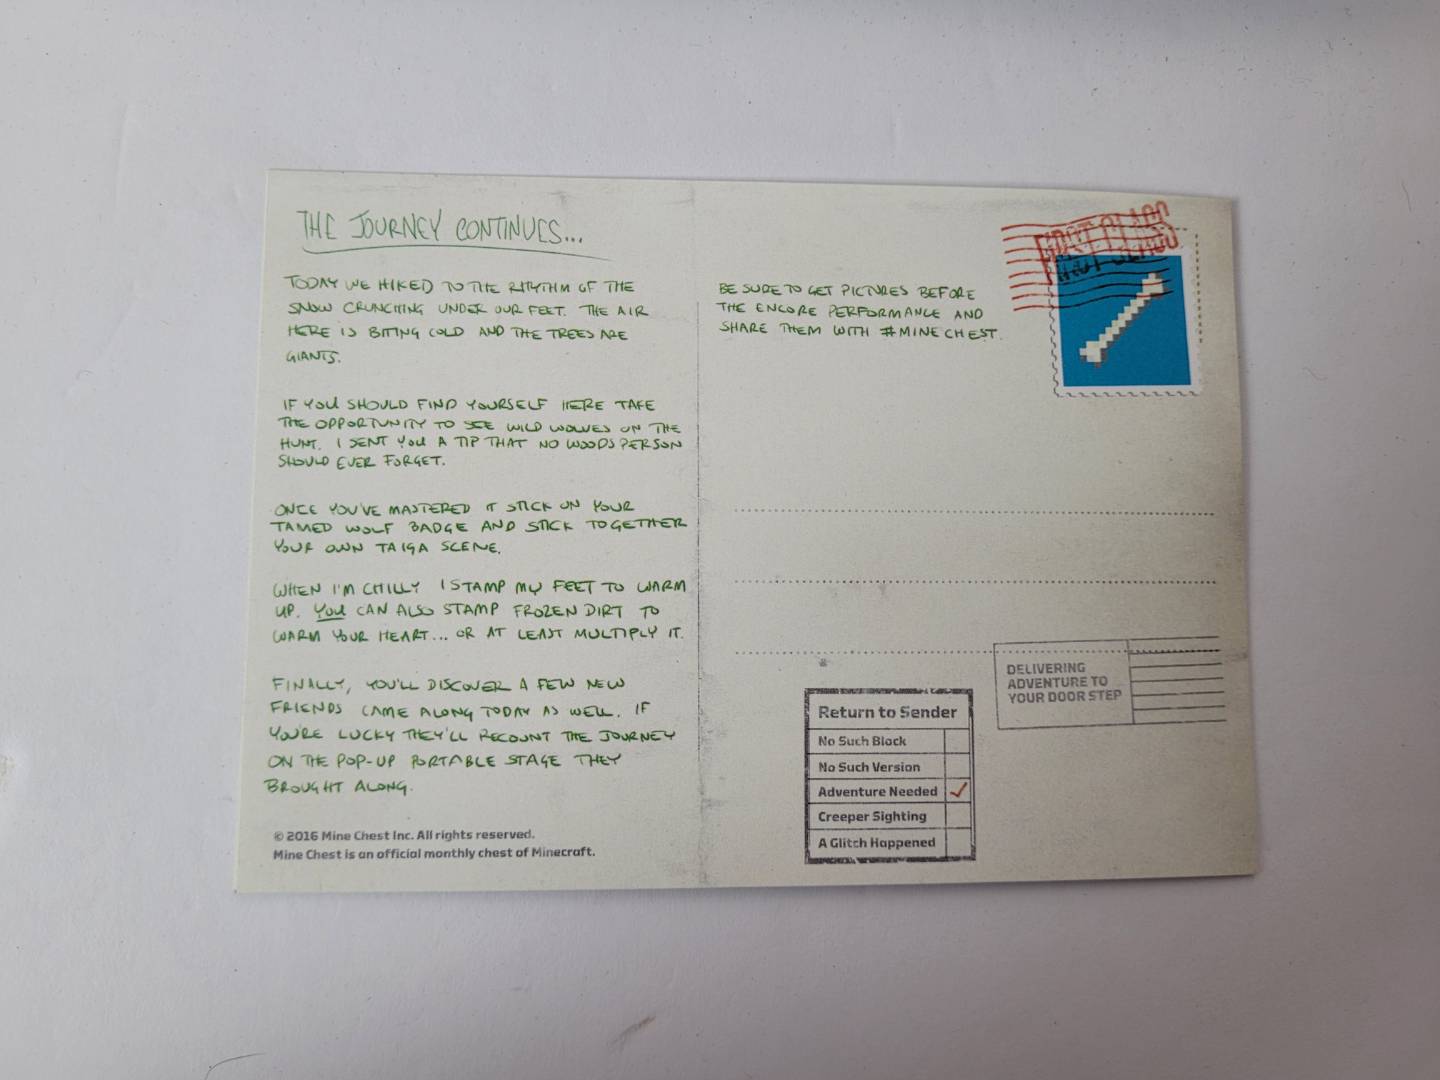 THE JOURNEY CONTINUES...
TODAY WE HIKED TO THE RHYTHM OF THE
SNOW CRUNCHING UNDER OUR FEET. THE AIR
HERE IS BITING COLD AND THE TREES ARE
GIANTS.
IF YOU SHOULD FIND YOURSELF HERE TAKE
THE OPPORTUNITY TO SEE WILD WOLVES ON THE
HUNT. I SENT YOU A TIP THAT NO WOODSPERSON
SHOULD EVER FORGET.
ONCE YOU'VE MASTERED IT STICK ON YOUR
TAMED WOLF BADGE AND STICK TOGETHER
YOUR OWN TAIGA SCENE.
WHEN I'M CHILLY I STAMP MY FEET TO WARM
UP. YOU CAN ALSO STAMP FROZEN DIRT TO
WARM YOUR HEART... OR AT LEAST MULTIPLY IT.
FINALLY, YOU'LL DISCOVER A FEW NEW
FRIENDS CAME ALONG TODAY AS WELL. IF
YOU'RE LUCKY THEY'LL RECOUNT THE JOURNEY
ON THE POP-UP PORTABLE STAGE THEY
BROUGHT ALONG.
© 2016 Mine Chest Inc. All rights reserved.
Mine Chest is an official monthly chest of Minecraft.
BE SURE TO GET PICTURES BEFORE
THE ENCORE PERFORMANCE AND
SHARE THEM WITH #MINECHEST.
FIRST CLASS
DELIVERING
ADVENTURE TO
YOUR DOOR STEP
Return to Sender
No Such Block
No Such Version
Adventure Needed
Creeper Sighting
A Glitch Happened